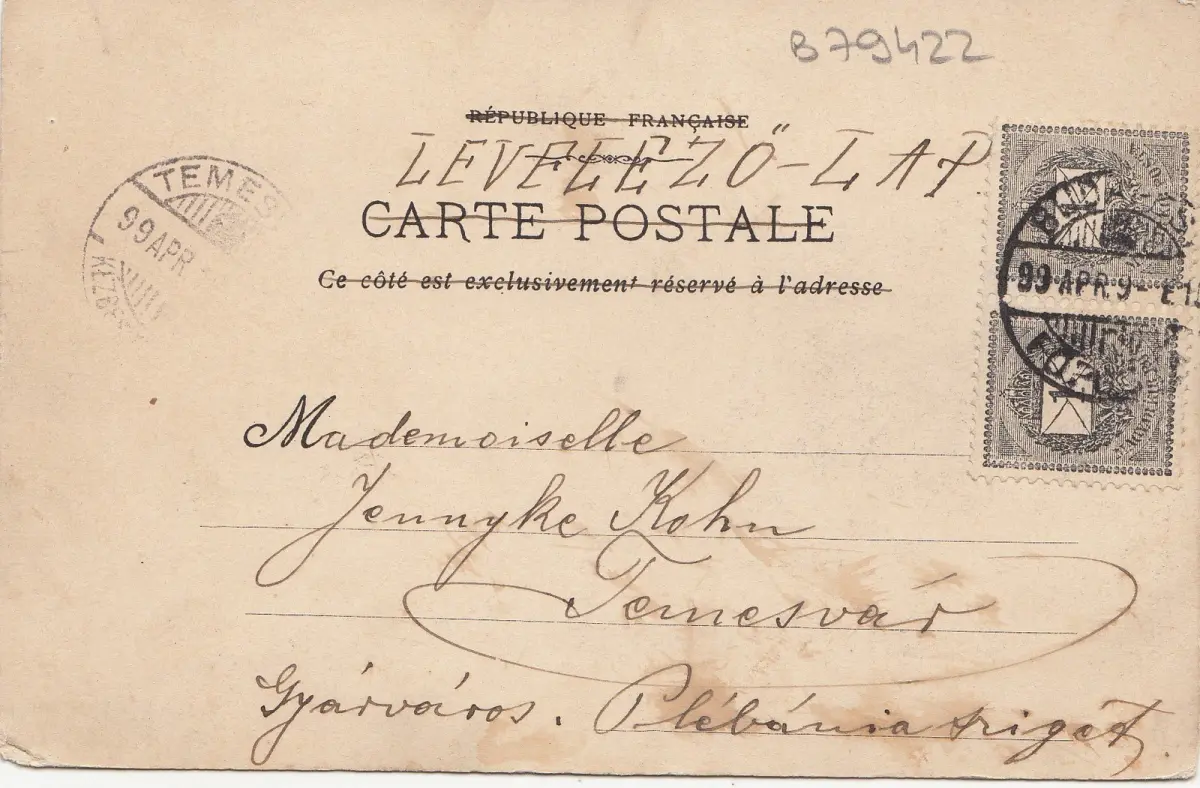 B79422
RÉPUBLIQUE FRANÇAISE
LEVELEZŐ-LAP
CARTE POSTALE
Ce côté est exclusivement réservé à l'adresse
TEMES
99 APR
KÉZBES
99 APR 9
Mademoiselle
Jennyke Kohn
Temesvár
Gyárváros. Plébánia sziget